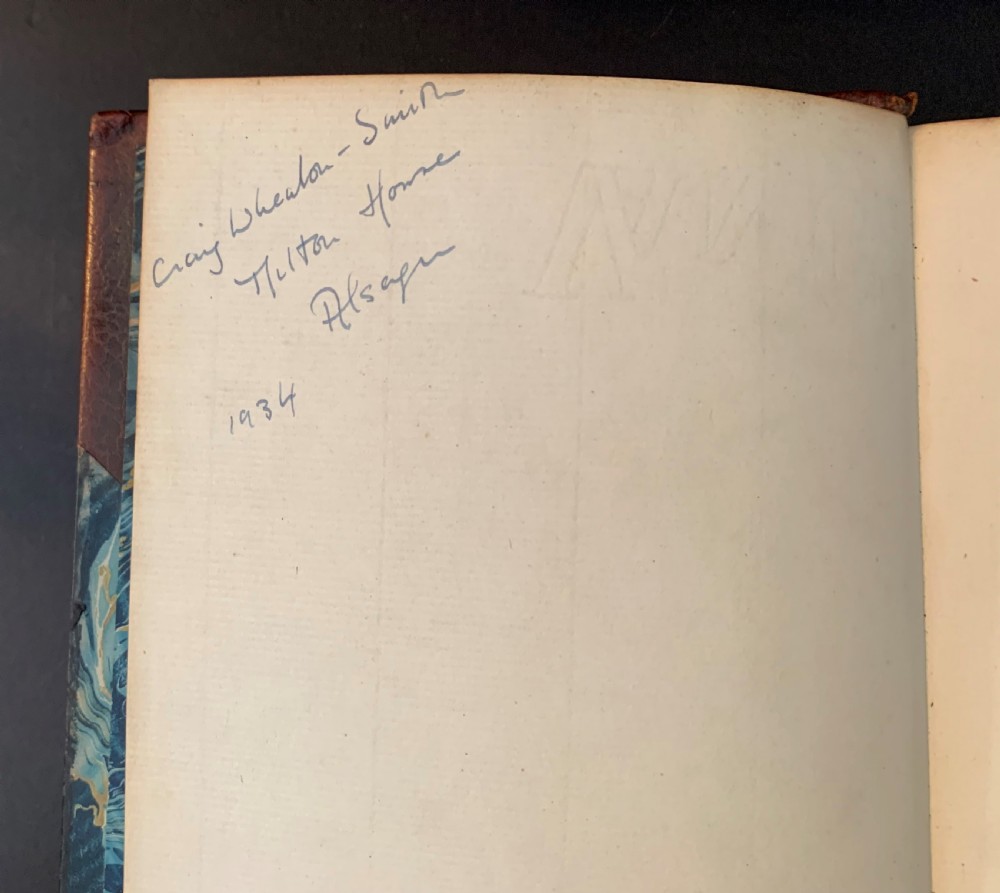 Craig Wheaton-Smith
Milton House
Alsager
1934